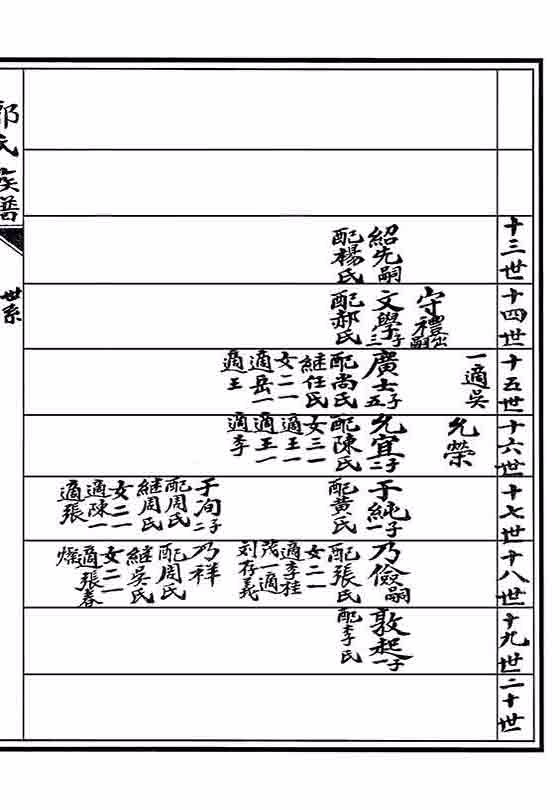 十三世
紹先嗣
配楊氏
十四世
守禮出嗣
文學三子
配郝氏
十五世
一適吳
廣士五子
配尚氏
継任氏
女二一
適岳一
適王
十六世
允榮
允宜二子
配陳氏
女三一
適王一
適王一
適李
十七世
于純一子
配黃氏
于洵二子
配周氏
継周氏
女二一
適陳一
適張
十八世
乃儉嗣
配張氏
女二一
適李桂
茂一適
刘存義
乃祥
配周氏
継吳氏
女二一
適張春
十九世
敦起一子
配李氏
二十世
郭氏族譜
世系